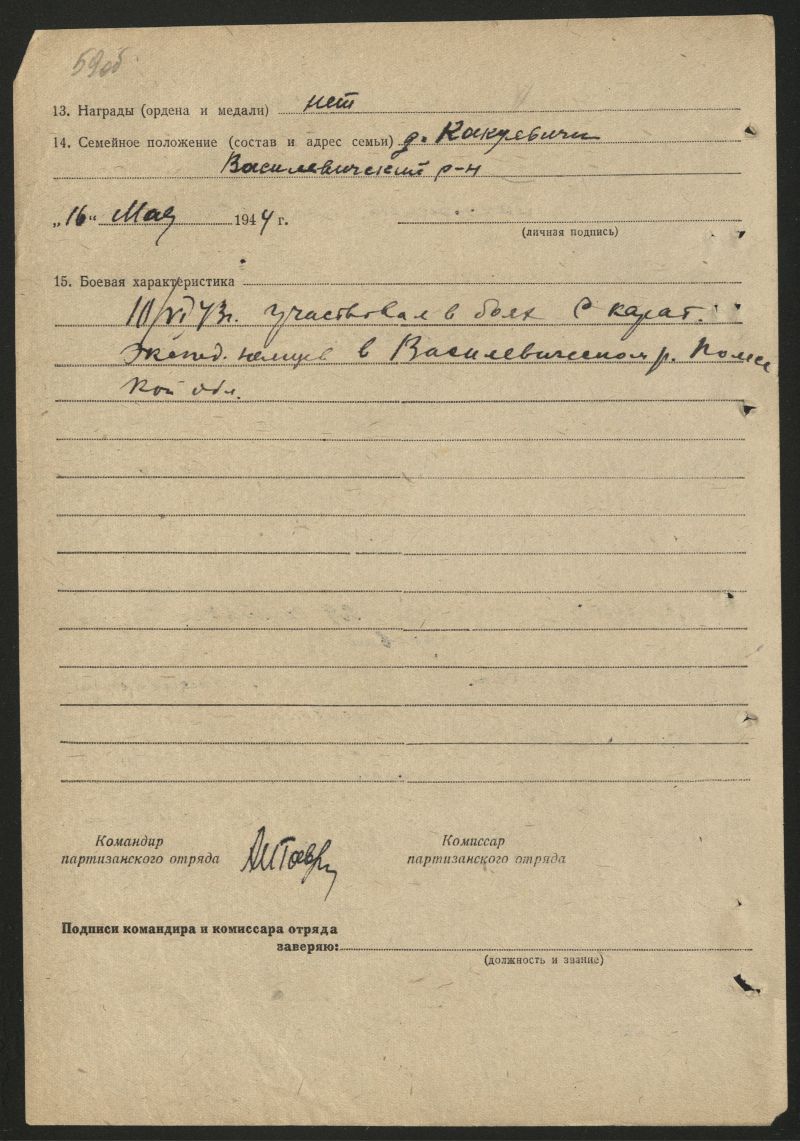 59об
13. Награды (ордена и медали) нет
14. Семейное положение (состав и адрес семьи) д. Какуевичи
Василевический р-н
„16“ Мая 1944 г.
(личная подпись)
15. Боевая характеристика
10/VI 43г. участвовал в боях с карат.
Экспед. немцев в Василевическом р. Полес
кой обл.
Командир
партизанского отряда
Комиссар
партизанского отряда
Подписи командира и комиссара отряда
заверяю:
(должность и звание)